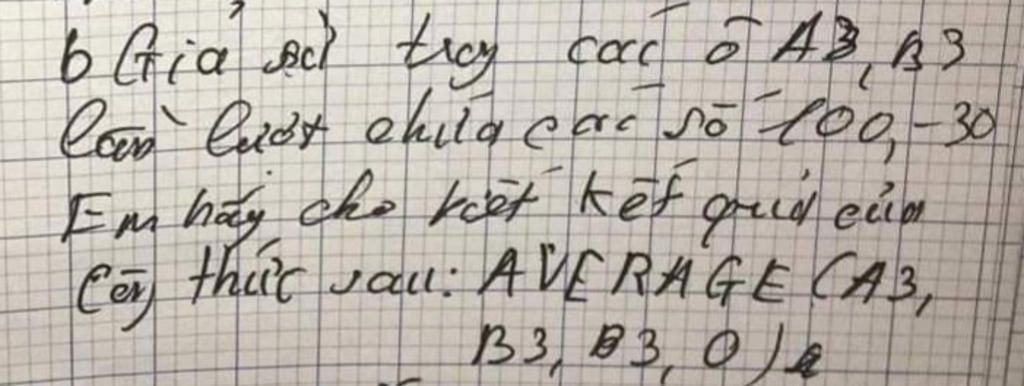 b Giả sử trog các ô A3, B3
lần lượt chứa các số 100, -30
Em hãy cho biết kết quả của
Côg thức sau: AVERAGE (A3,
B3, B3, 0)